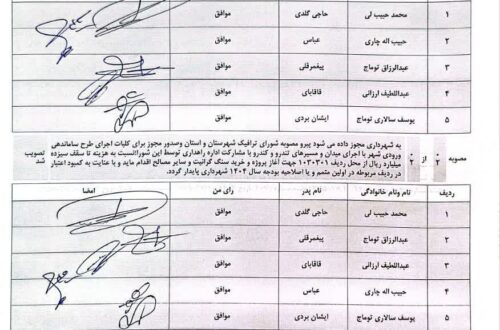 ۱ محمد حبیب لی حاجی گلدی موافق
۲ حبیب اله چاری عباس موافق
۳ عبدالرزاق توماج پیغمرقلی موافق
۴ عبداللطیف ارزانی قاقابای موافق
۵ یوسف سالاری توماج ایشان بردی موافق
به شهرداری مجوز داده می شود پیرو مصوبه شورای ترافیک شهرستان و استان وصدور مجوز برای کلیات اجرای طرح ساماندهی
ورودی شهر با اجرای میدان و مسیرهای تندرو و کندرو با مشارکت اداره راهداری توسط این شورانسبت به هزینه تا سقف سیزده
مصوبه ۲ از ۲ میلیارد ریال از محل ردیف ۱۰۳۰۲۰۱ جهت آغاز پروژه و خرید سنگ گرانیت و سایر مصالح اقدام نماید و با عنایت به کمبود اعتبار تصویب شد
در ردیف مربوطه در اولین متمم و یا اصلاحیه بودجه سال ۱۴۰۴ شهرداری پایدار گردد.
ردیف نام ونام خانوادگی نام پدر رای من امضا
۱ محمد حبیب لی حاجی گلدی موافق
۲ عبدالرزاق توماج پیغمرقلی موافق
۳ عبداللطیف ارزانی قاقابای موافق
۴ حبیب اله چاری عباس موافق
۵ یوسف سالاری توماج ایشان بردی موافق